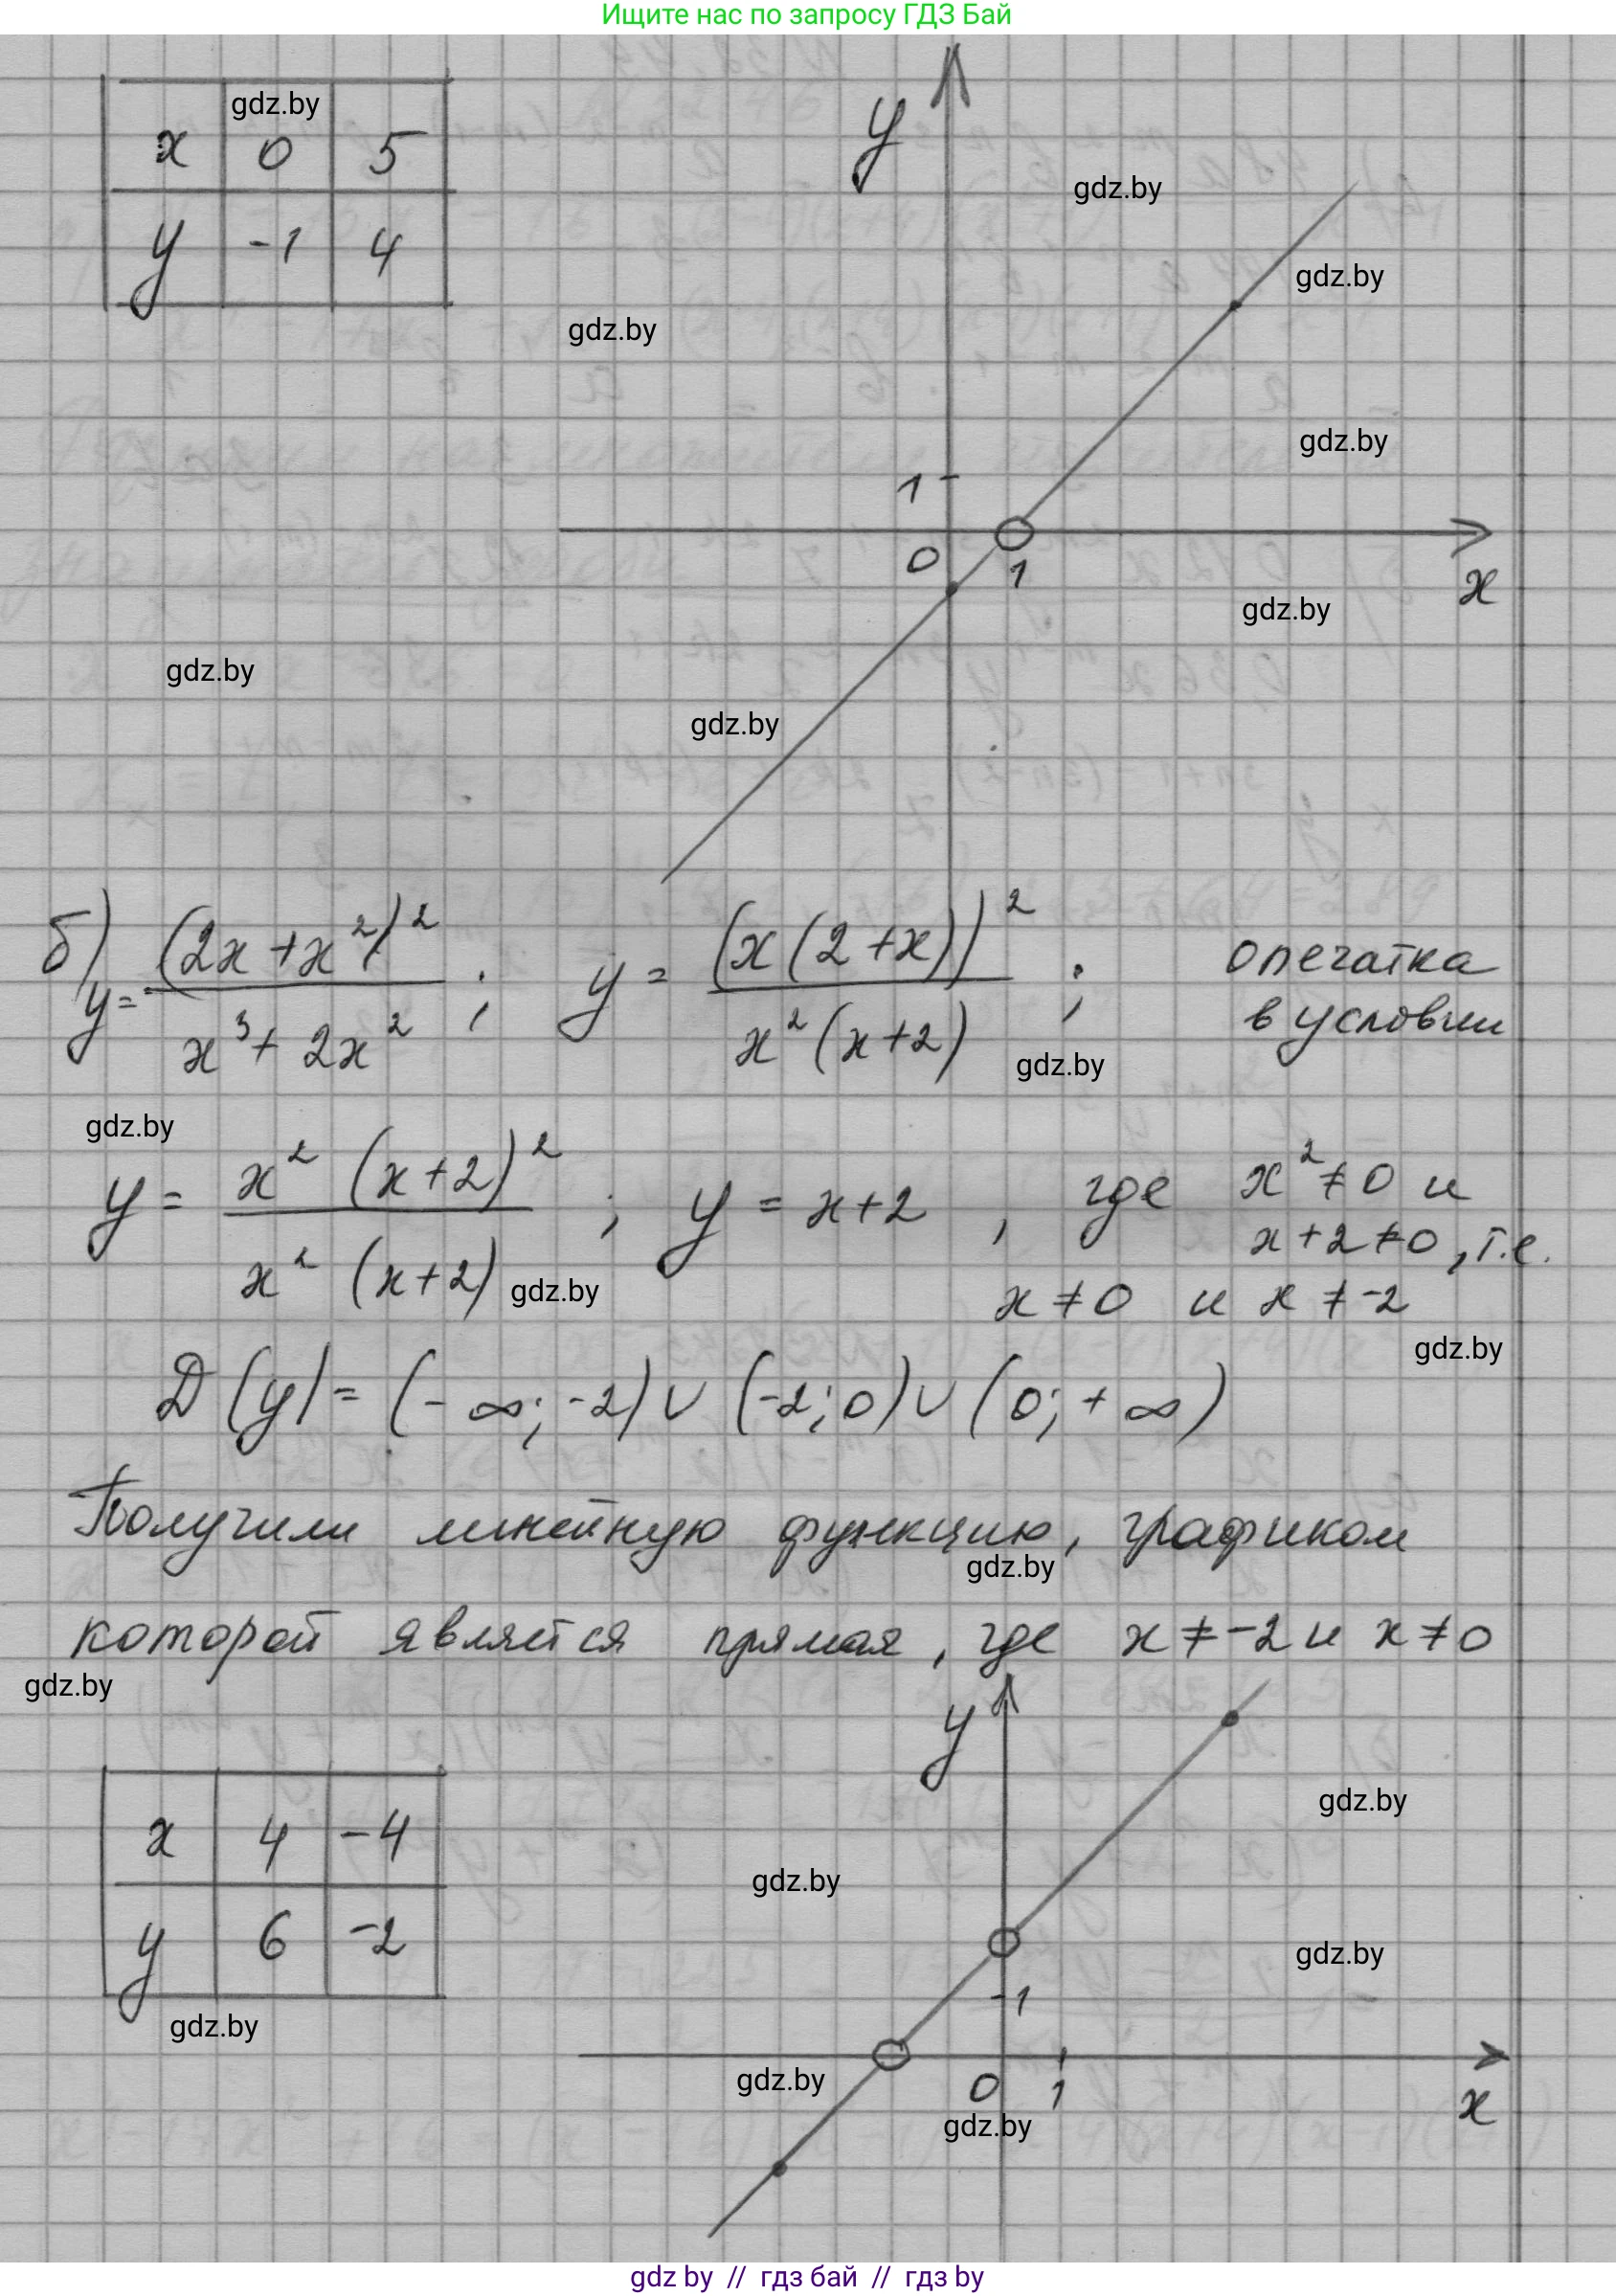 Ищите нас по запросу ГДЗ Бай
gdz.by
x 0 5
y -1 4
y
gdz.by
gdz.by
gdz.by
gdz.by
1
0 1
x
gdz.by
gdz.by
gdz.by
б) y = (2x + x²)² / (x³ + 2x²) ; y = (x(2+x))² / (x²(x+2)) ; опечатка
в условии
gdz.by
gdz.by
y = x² (x+2)² / (x² (x+2)) ; y = x+2 , где x² ≠ 0 и
x+2 ≠ 0, т.е.
gdz.by
x ≠ 0 и x ≠ -2
gdz.by
D(y) = (-∞; -2) ∪ (-2; 0) ∪ (0; +∞)
Получили линейную функцию, графиком
gdz.by
которой является прямая, где x ≠ -2 и x ≠ 0
gdz.by
y
x 4 -4
y 6 -2
gdz.by
gdz.by
gdz.by
1
gdz.by
gdz.by
0 1
x
gdz.by
gdz by // гдз бай // гдз by